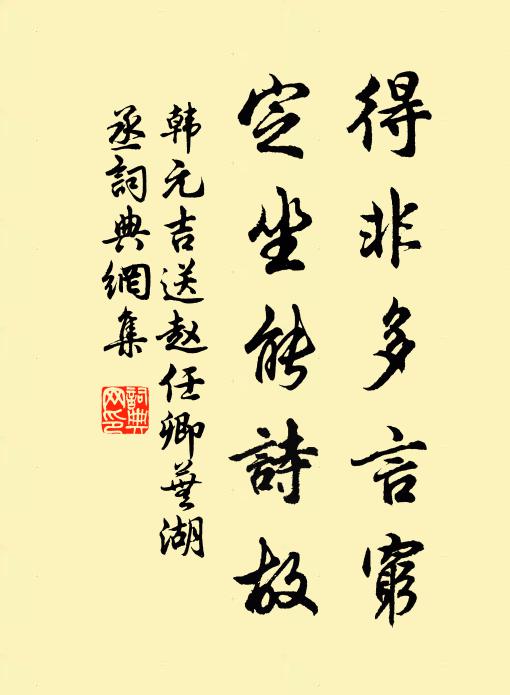 得非多言窮
定坐能詩故
韩元吉送赵任卿蕪湖
丞詞典網集
詞典
网印